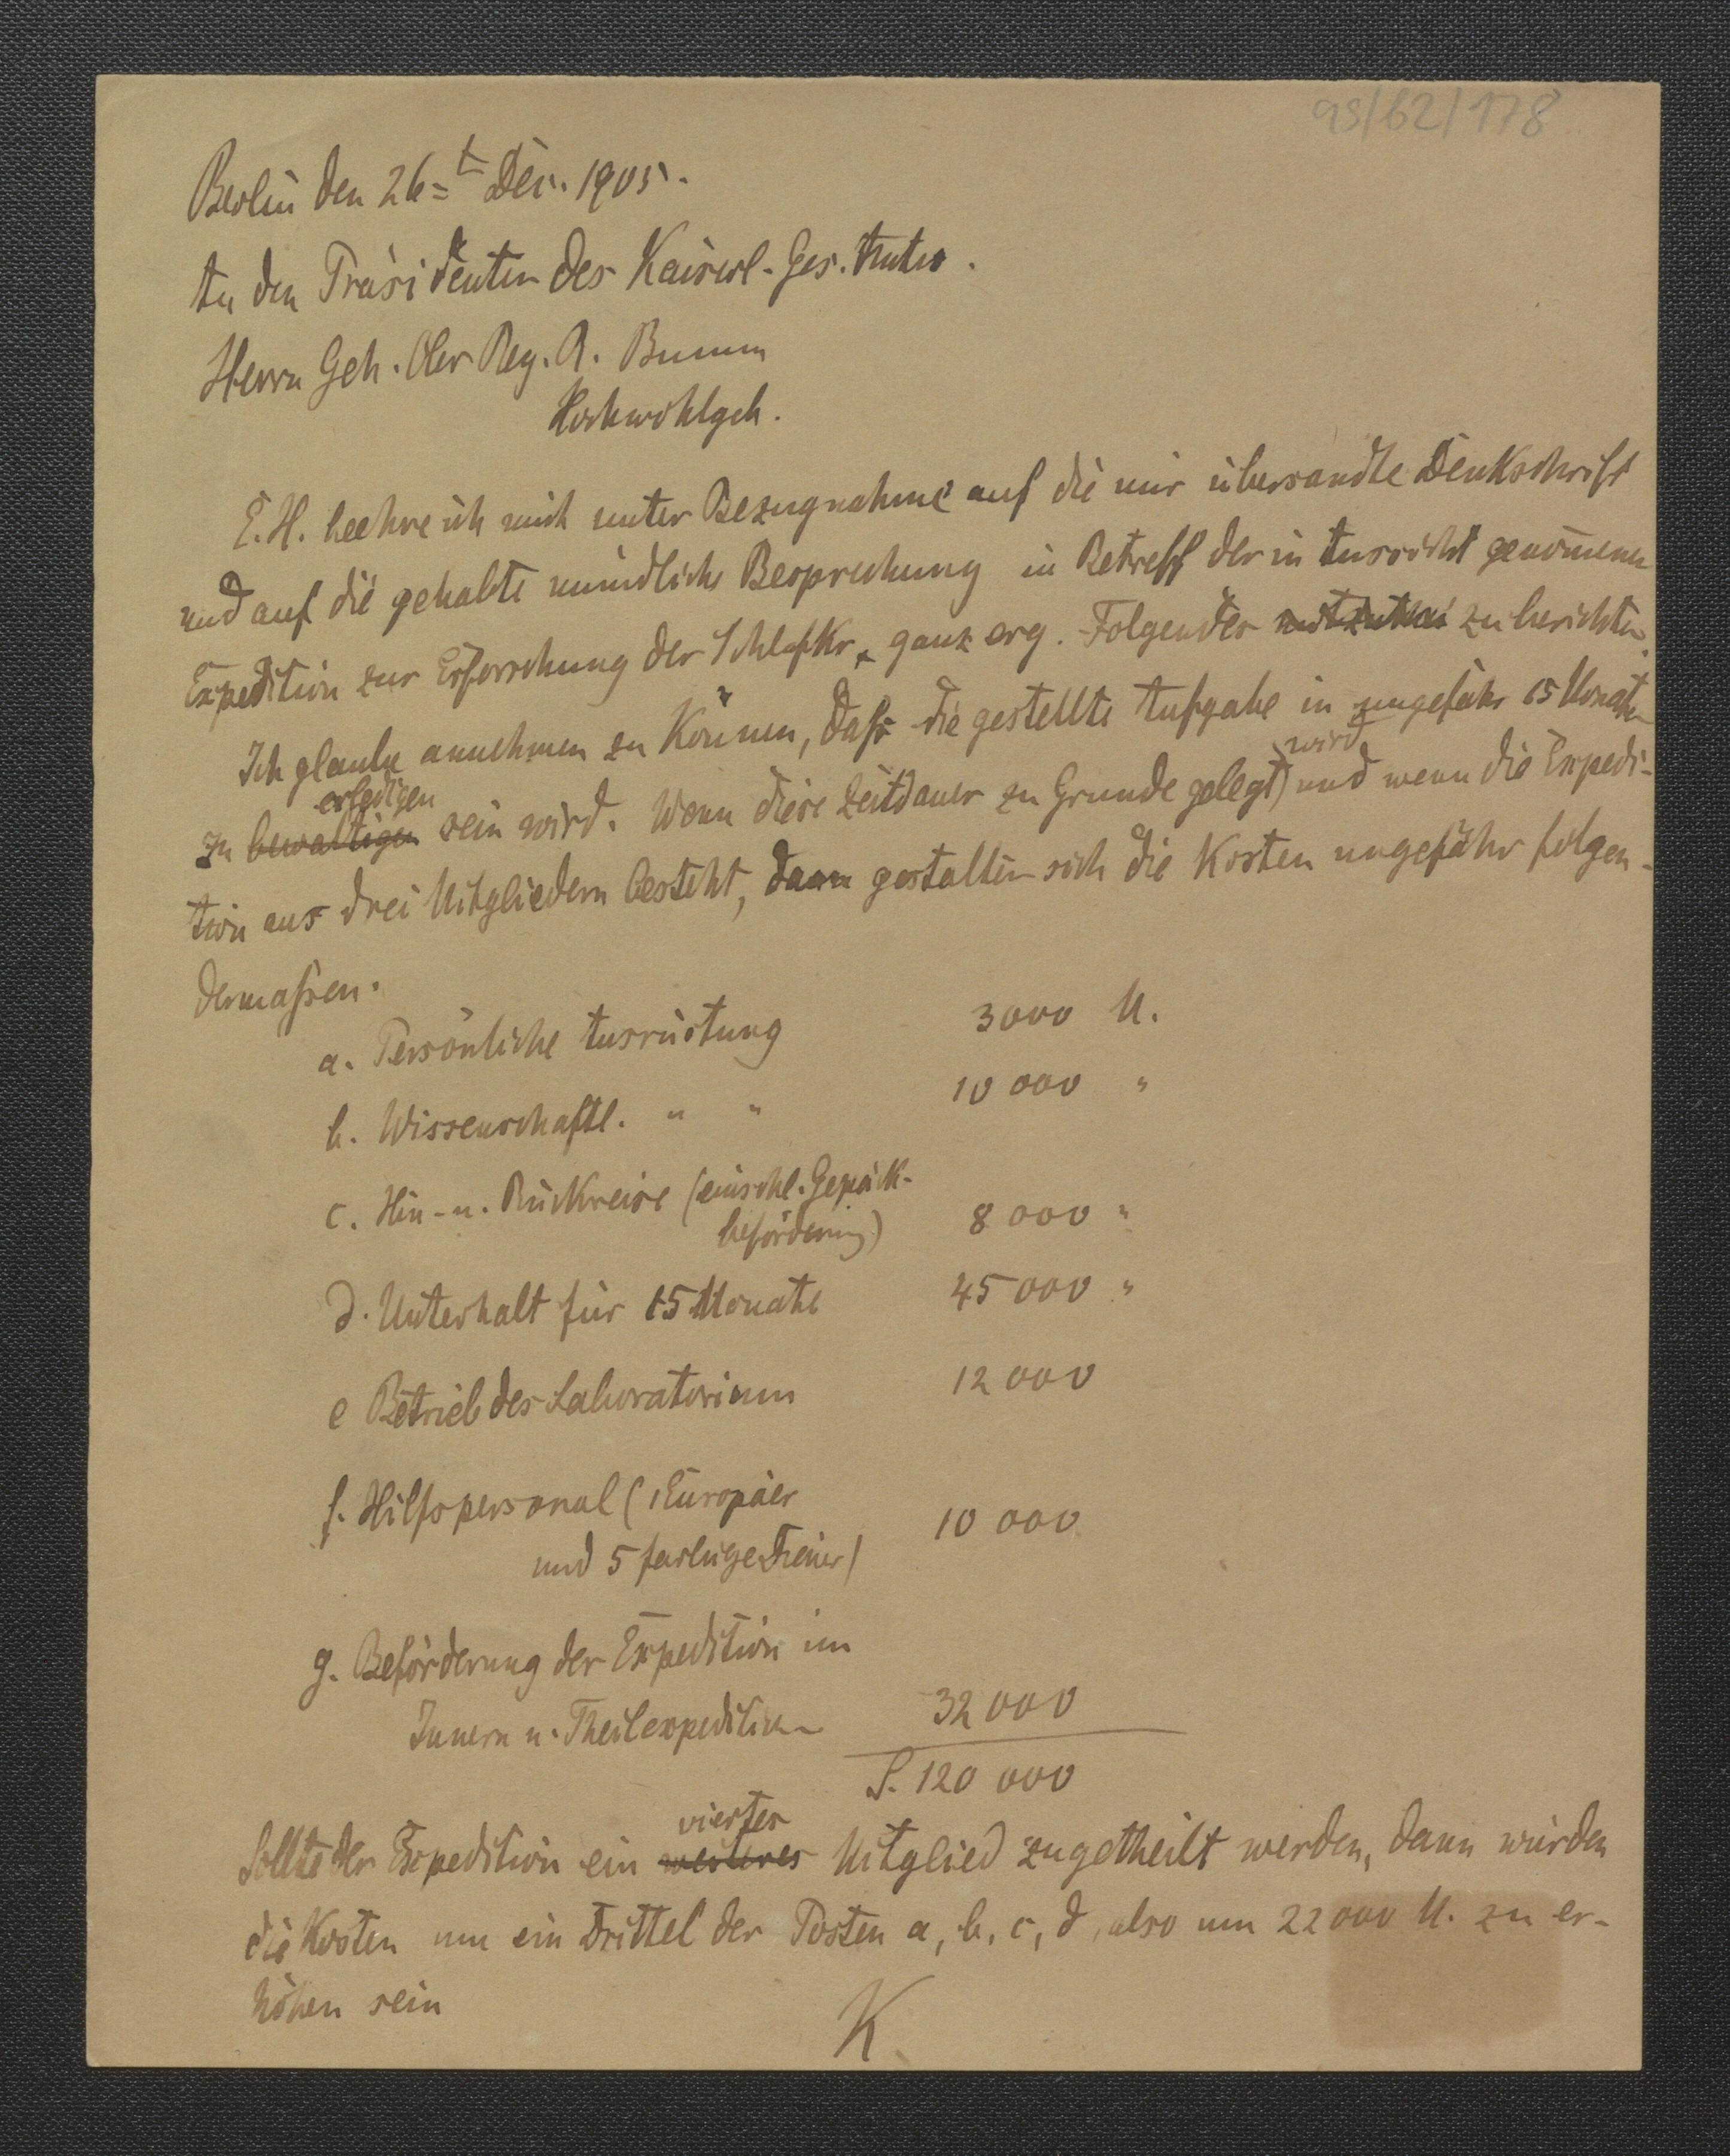 as/62/178
Berlin den 26=t Dec. 1905.
An den Präsidenten des Kaiserl. Ges. Amtes.
Herrn Geh. Ober Reg. R. Bumm
Hochwohlgeb.
E. H. beehre ich mich unter Bezugnahme auf die mir übersandte Denkschrift
und auf die gehabte mündliche Besprechung in Betreff der in Aussicht genommenen
Expedition zur Erforschung der Schlafkr. ganz erg. Folgendes mitzutheilen zu berichten.
Ich glaube annehmen zu können, daß die gestellte Aufgabe in ungefähr 15 Monaten
erledigen wird
zu bewältigen sein wird. Wenn diese Zeitdauer zu Grunde gelegt und wenn die Expedi-
tion aus drei Mitgliedern besteht, dann gestalten sich die Kosten ungefähr folgen-
dermaßen.
a. Persönliche Ausrüstung 3000 M.
b. Wissenschaftl. " " 10 000 "
c. Hin- u. Rückreise (einschl. Gepäck-
beförderung) 8 000 "
d. Unterhalt für 15 Monate 45 000 "
e Betrieb des Laboratorium 12 000
f. Hilfspersonal (1 Europäer
und 5 farbige Diener) 10 000
g. Beförderung der Expedition im
Innern u. Theilexpedition 32 000
S. 120 000
viertes
Sollte der Expedition ein weiteres Mitglied zugetheilt werden, dann würden
die Kosten um ein Drittel der Posten a, b, c, d, also um 22 000 M. zu er-
höhen sein
K